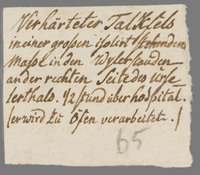 Verhärteter Talkfels
in einer großen isolirt stehenden
Masse in den Wylerstauden
an der rechten Seite des urse
lerthals. 1/2 stund über hospital.
(er wird zu Öfen verarbeitet.)
65